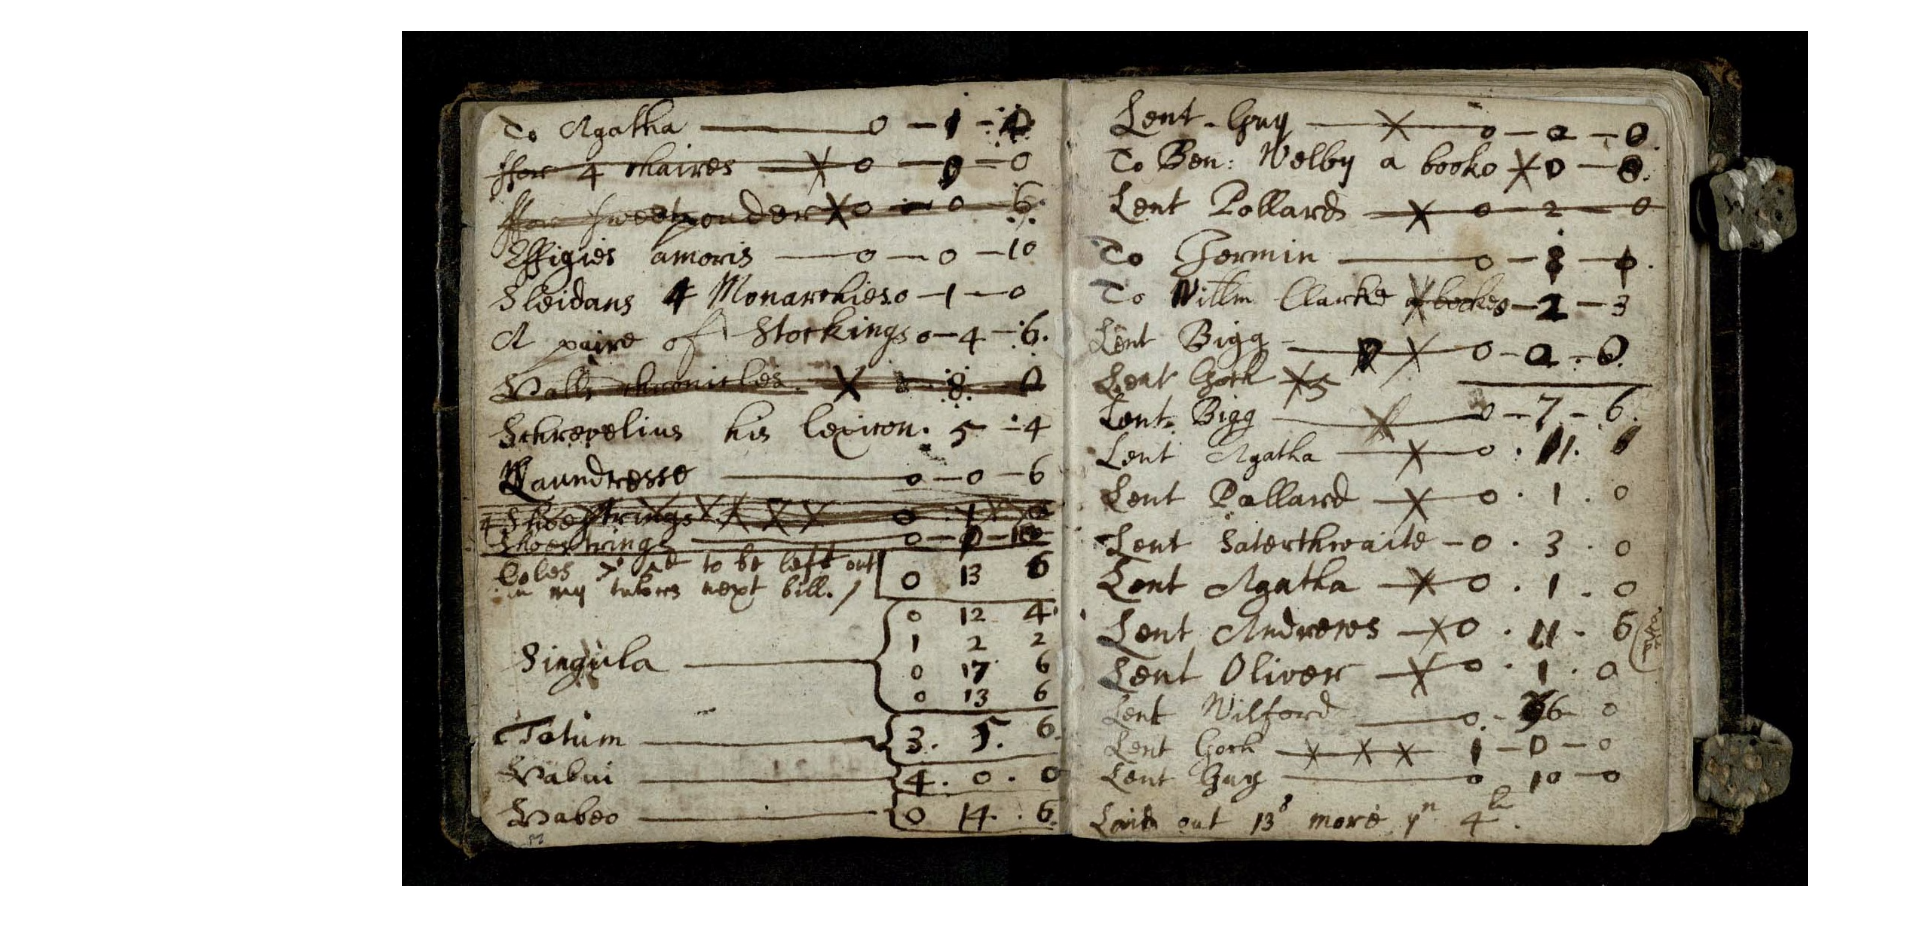 To Agatha 0 - 1 - 4
ffor 4 chaires X 0 - 9 - 0
ffor sweet pouder X 0 - 0 - 6.
Effigies amoris 0 - 0 - 10
Sleidans 4 Monarchies. 0 - 1 - 0
A paire of Stockings 0 - 4 - 6.
Halls chronicles. X 8. 0
Schrevelius his lexicon. 5 - 4
Laundresse 0 - 0 - 6
Shoestrings X X X X 0 1
Shoestrings 0 - 0 - 10
to be left out
in my tutors next bill. / 0 13 6
0 12 4
1 2 2
Singula
0 17 6
0 13 6
Totum 3. 5. 6
Habui 4. 0. 0
Habeo 0 14. 6
Lent Guy X 0 - 2 - 0
To Ben: Welby a booke X 0 - 8.
Lent Pollard X 0 - 2 - 0
To Jermin 0 -
To Willm Clarke X bookes - 2 - 3
Lent Bigg X 0 - 2. 0.
Lent Gosh X 5
Lent Bigg X 0 - 7 - 6.
Lent Agatha X 0. 11. 1
Lent Pollard X 0. 1. 0
Lent Saterthwaite - 0. 3. 0
Lent Agatha X 0. 1. 0
Lent Andrewes X 0. 11. 6
Lent Oliver X 0. 1. 0
Lent Wilford 0. 6 0
Lent Gosh X X X 1 - 0 - 0
Lent Guy 0 10 - 0
Laid out 13s more yn 4li.